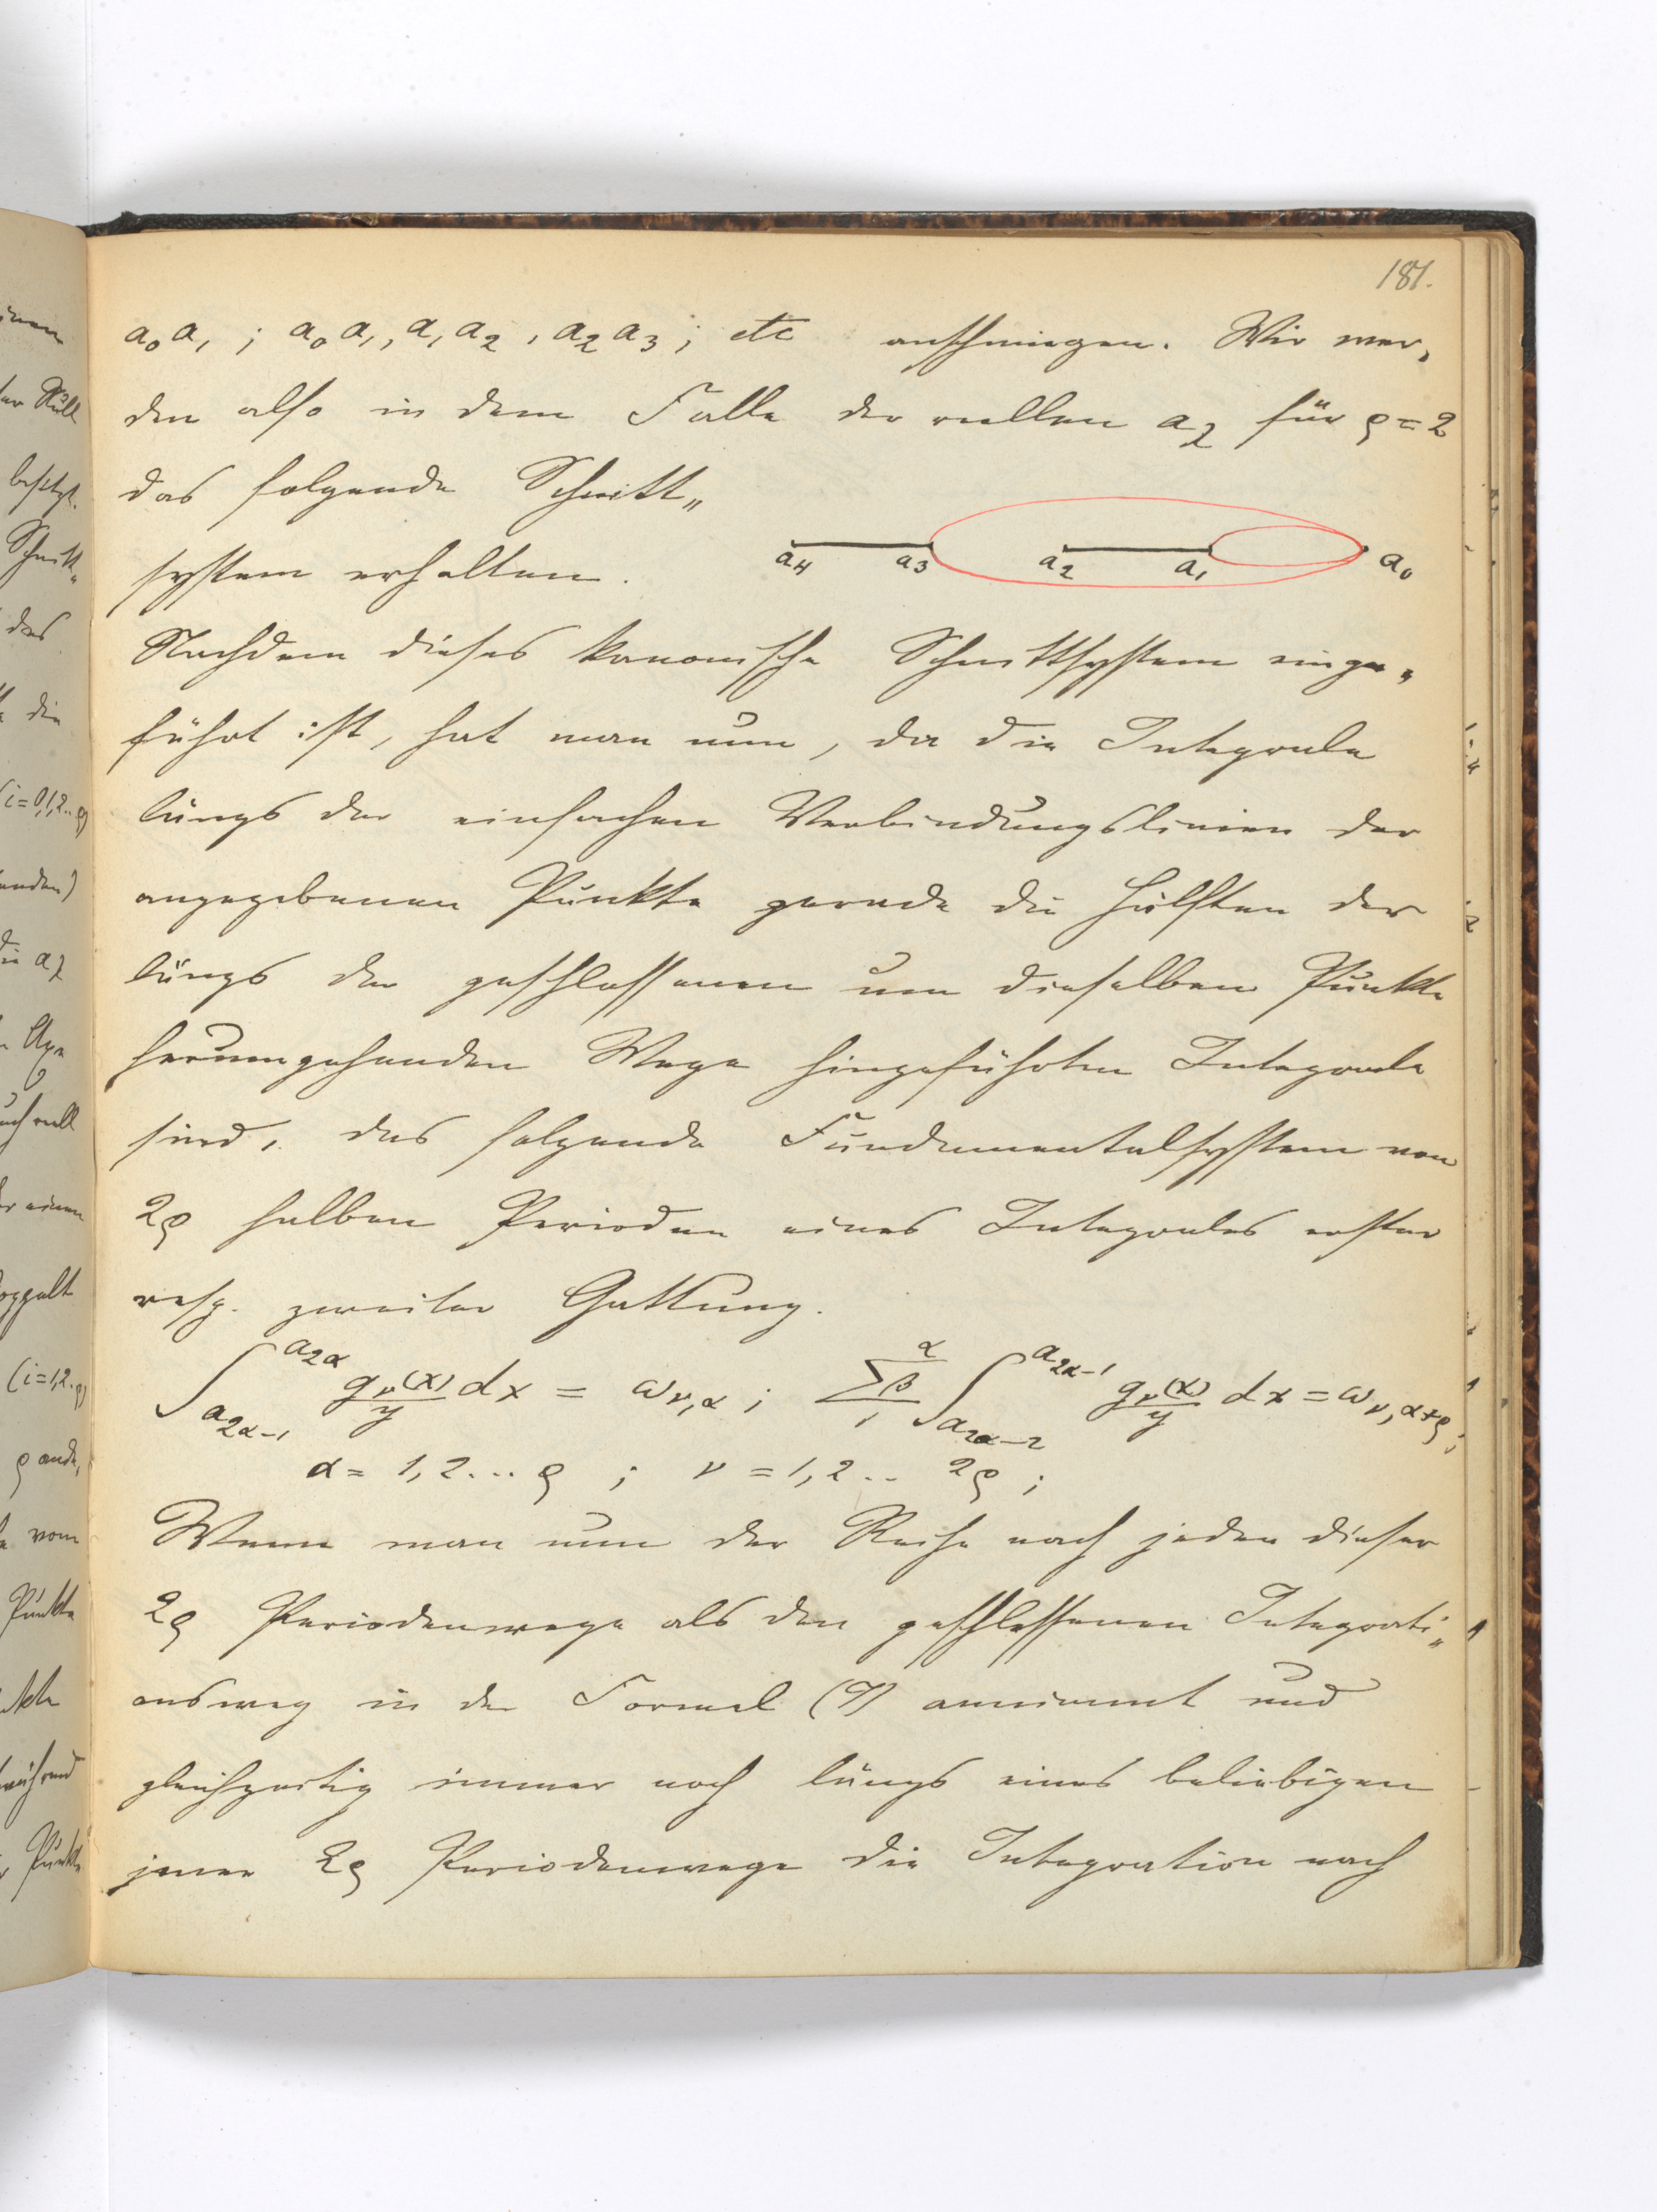 181.
a₀a₁ ; a₀a₁, a₁a₂, a₂a₃ ; etc anschmiegen. Wir wer„
den also in dem Falle der reellen aλ für ρ=2
das folgende Schnitt„
system erhalten.
a₄ a₃ a₂ a₁ a₀
Nachdem dieses kanonische Schnittsystem einge„
führt ist, hat man nun, da die Integrale
längs der einfachen Verbindungslinien der
angegebenen Punkte gerade die Hälften der
längs der geschlossenen um dieselben Punkte
herumgehenden Wege hingeführten Integrale
sind, das folgende Fundamentalsystem von
2ρ halben Perioden eines Integrales erster
resp. zweiter Gattung.
∫_{a_{2α-1}}^{a_{2α}} g_ν(x)/y dx = ω_{ν,α} ; Σ_{1}^{α}β ∫_{a_{2α-2}}^{a_{2α-1}} g_ν(x)/y dx = ω_{ν,α+ρ} ;
α = 1,2...ρ ; ν = 1,2.. 2ρ ;
Wenn man nun der Reihe nach jeden dieser
2ρ Periodenwege als den geschlossenen Integrati„
onsweg in der Formel annimmt und
gleichzeitig immer noch längs eines beliebigen
jener 2ρ Periodenwege die Integration nach